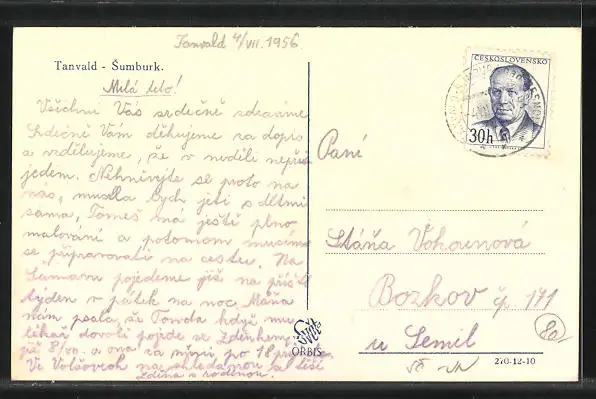 Tanvald 4/VII. 1956
Tanvald - Šumburk.
Milá teto!
Všichni Vás srdečně zdravíme
Srdečně Vám děkujeme za dopis
a vzdělujeme, že v neděli nepři
jedem. Nehněvejte se proto na
nás, musela bych jeti s dětmi
sama, Tomeš má ještě plno
malování a potomom musíme
se připravovati na cestu. Na
Šumavu pojedeme již na příští
týden v pátek na noc. Máňa
nám psala, že když mu
lékař dovolí pojede se Zdeňkem
již 8/VII. a ona za nimi po 18
Ve na shledanou se těší
Zdena s rodinou.
ČESKOSLOVENSKO
30h
Paní
Stáňa Vohounová
Bozkov čp. 171
u Semil
Svět
ORBIS
270-12-10